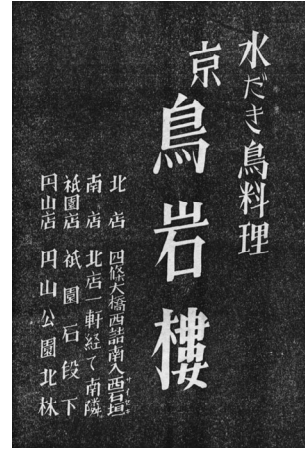 水だき鳥料理
京
鳥岩樓
北店 四條大橋西詰南入西石垣
サイセキ
南店 北店一軒経て南隣。
祇園店 祇園石段下
円山店 円山公園北林